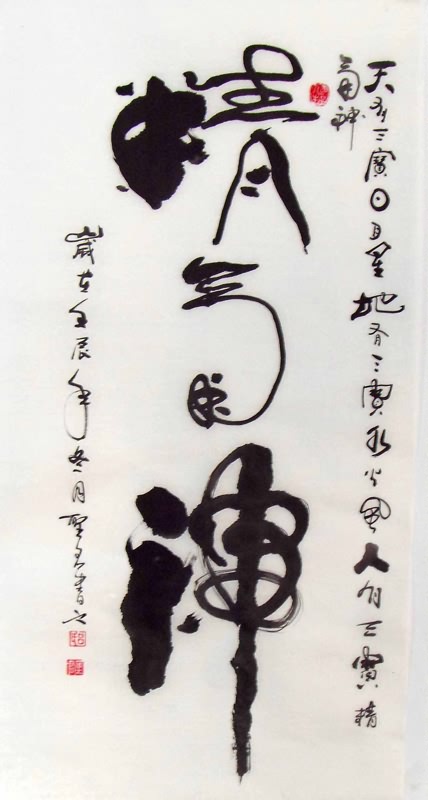 天有三寶日月星地有三寶水火風人有三寶精
氣神
精氣神
歲在壬辰年冬月聖書之